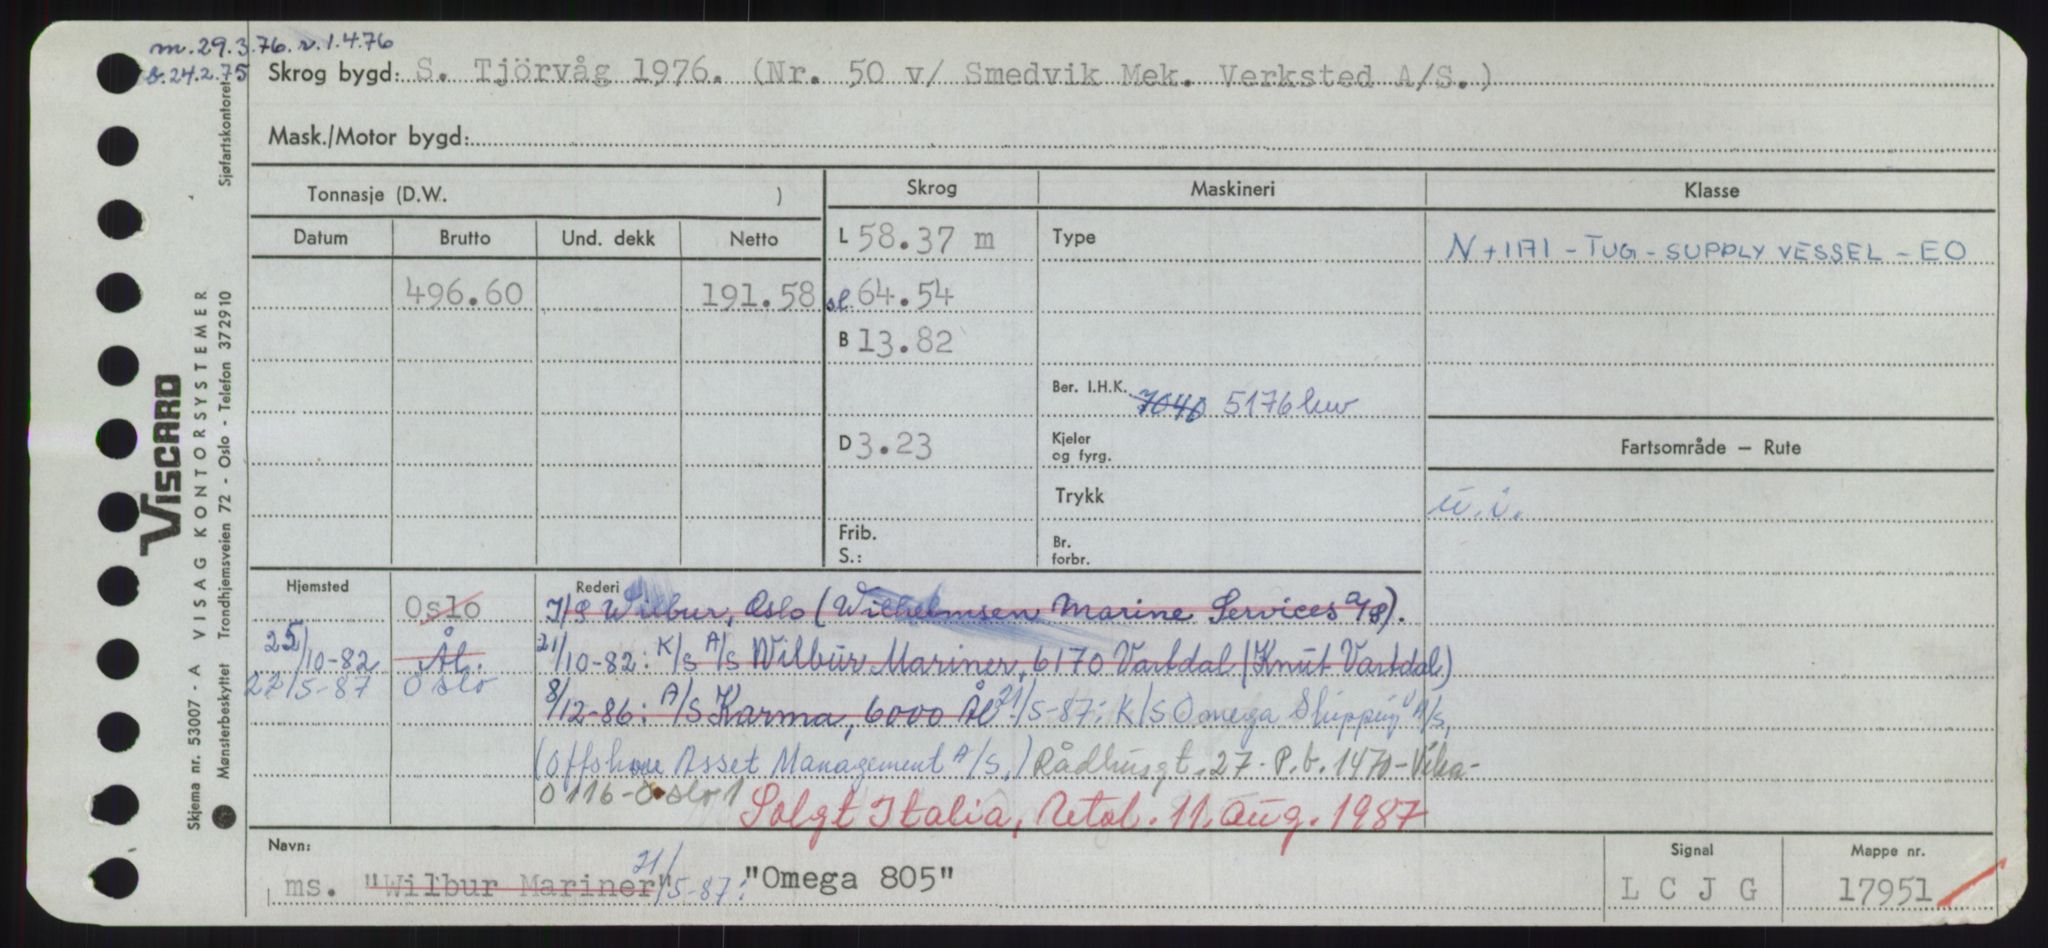 m. 29.3.76. r. 1.4.76
b. 24.2.75
Skrog bygd: S. Tjörvåg 1976. (Nr. 50 v/ Smedvik Mek. Verksted A/S.)
Mask./Motor bygd:
Tonnasje (D.W. )
Skrog
Maskineri
Klasse
Datum
Brutto
Und. dekk
Netto
L 58.37 m
Type
N + 1A1 - TUG - SUPPLY VESSEL - EO
496.60
191.58
sl. 64.54
B 13.82
Ber. I.H.K. 7040 5176 bhk
D 3.23
Kjeler
og fyrg.
Fartsområde — Rute
Trykk
u.i.
Frib.
S.:
Br.
forbr.
Hjemsted
Rederi
Oslo
I/S Wilbur, Oslo (Wilhelmsen Marine Services a/s).
25/10-82 Ål.
21/10-82: K/S A/S Wilbur Mariner, 6170 Vartdal (Knut Vartdal)
22/5-87 Oslo
8/12-86: A/S Karma, 6000 Ål 21/5-87: K/S Omega Shipping A/S,
(Offshore Asset Management A/S,) Rådhusgt. 27. P.b. 1470-Vika-
0116-Oslo 1
Solgt Italia, Notal. 11. aug. 1987
Navn:
ms. "Wilbur Mariner" 21/5-87: "Omega 805"
Signal
L C J G
Mappe nr.
17951
Sjøfartskontoret
VISCARD
Skjema nr. 53007 - A VISAG KONTORSYSTEMER
Mønsterbeskyttet Trondhjemsveien 72 - Oslo - Telefon 372910